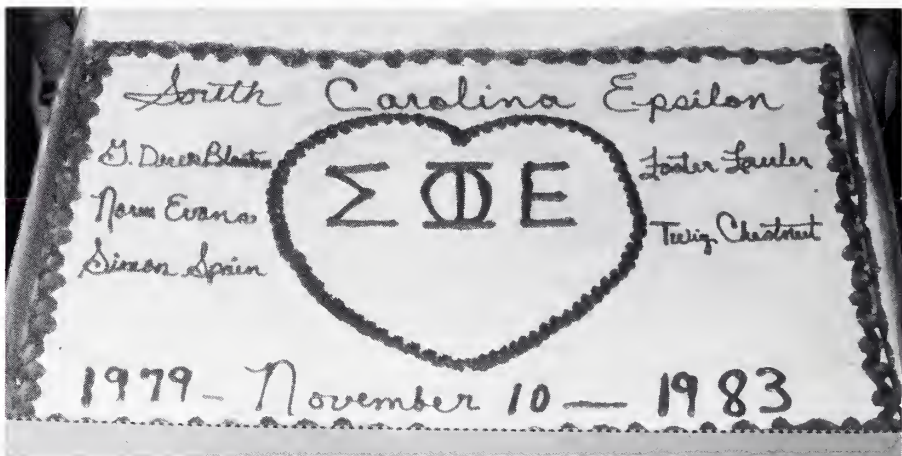 South Carolina Epsilon
G. Derek
Norm Evans
Simon Spain
ΣΦE
Foster Fowler
Twig Chestnut
1979 - November 10 - 1983